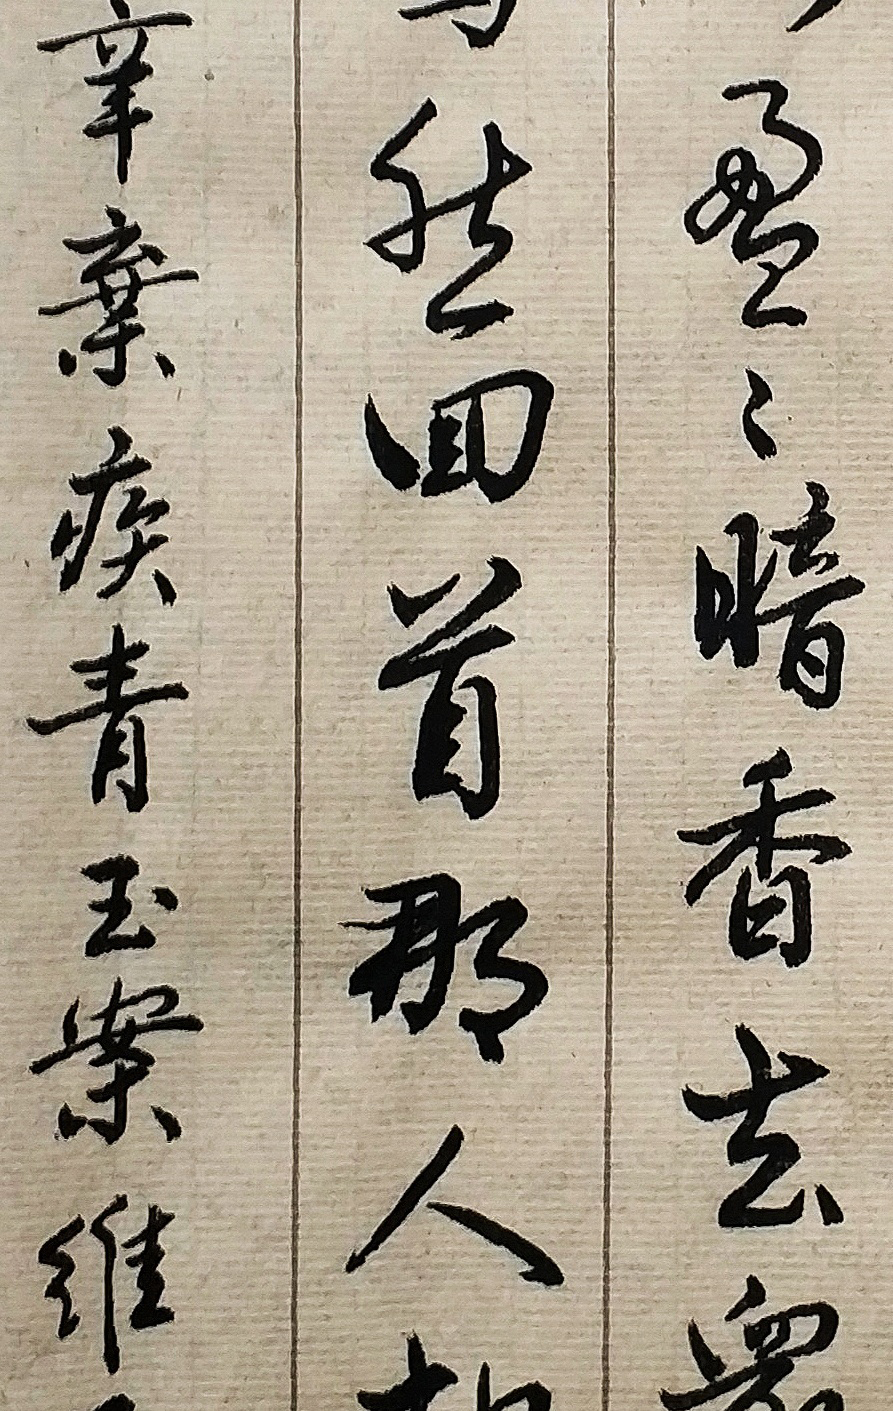 盈〻暗香去眾
然回首那人却
辛棄疾青玉案維